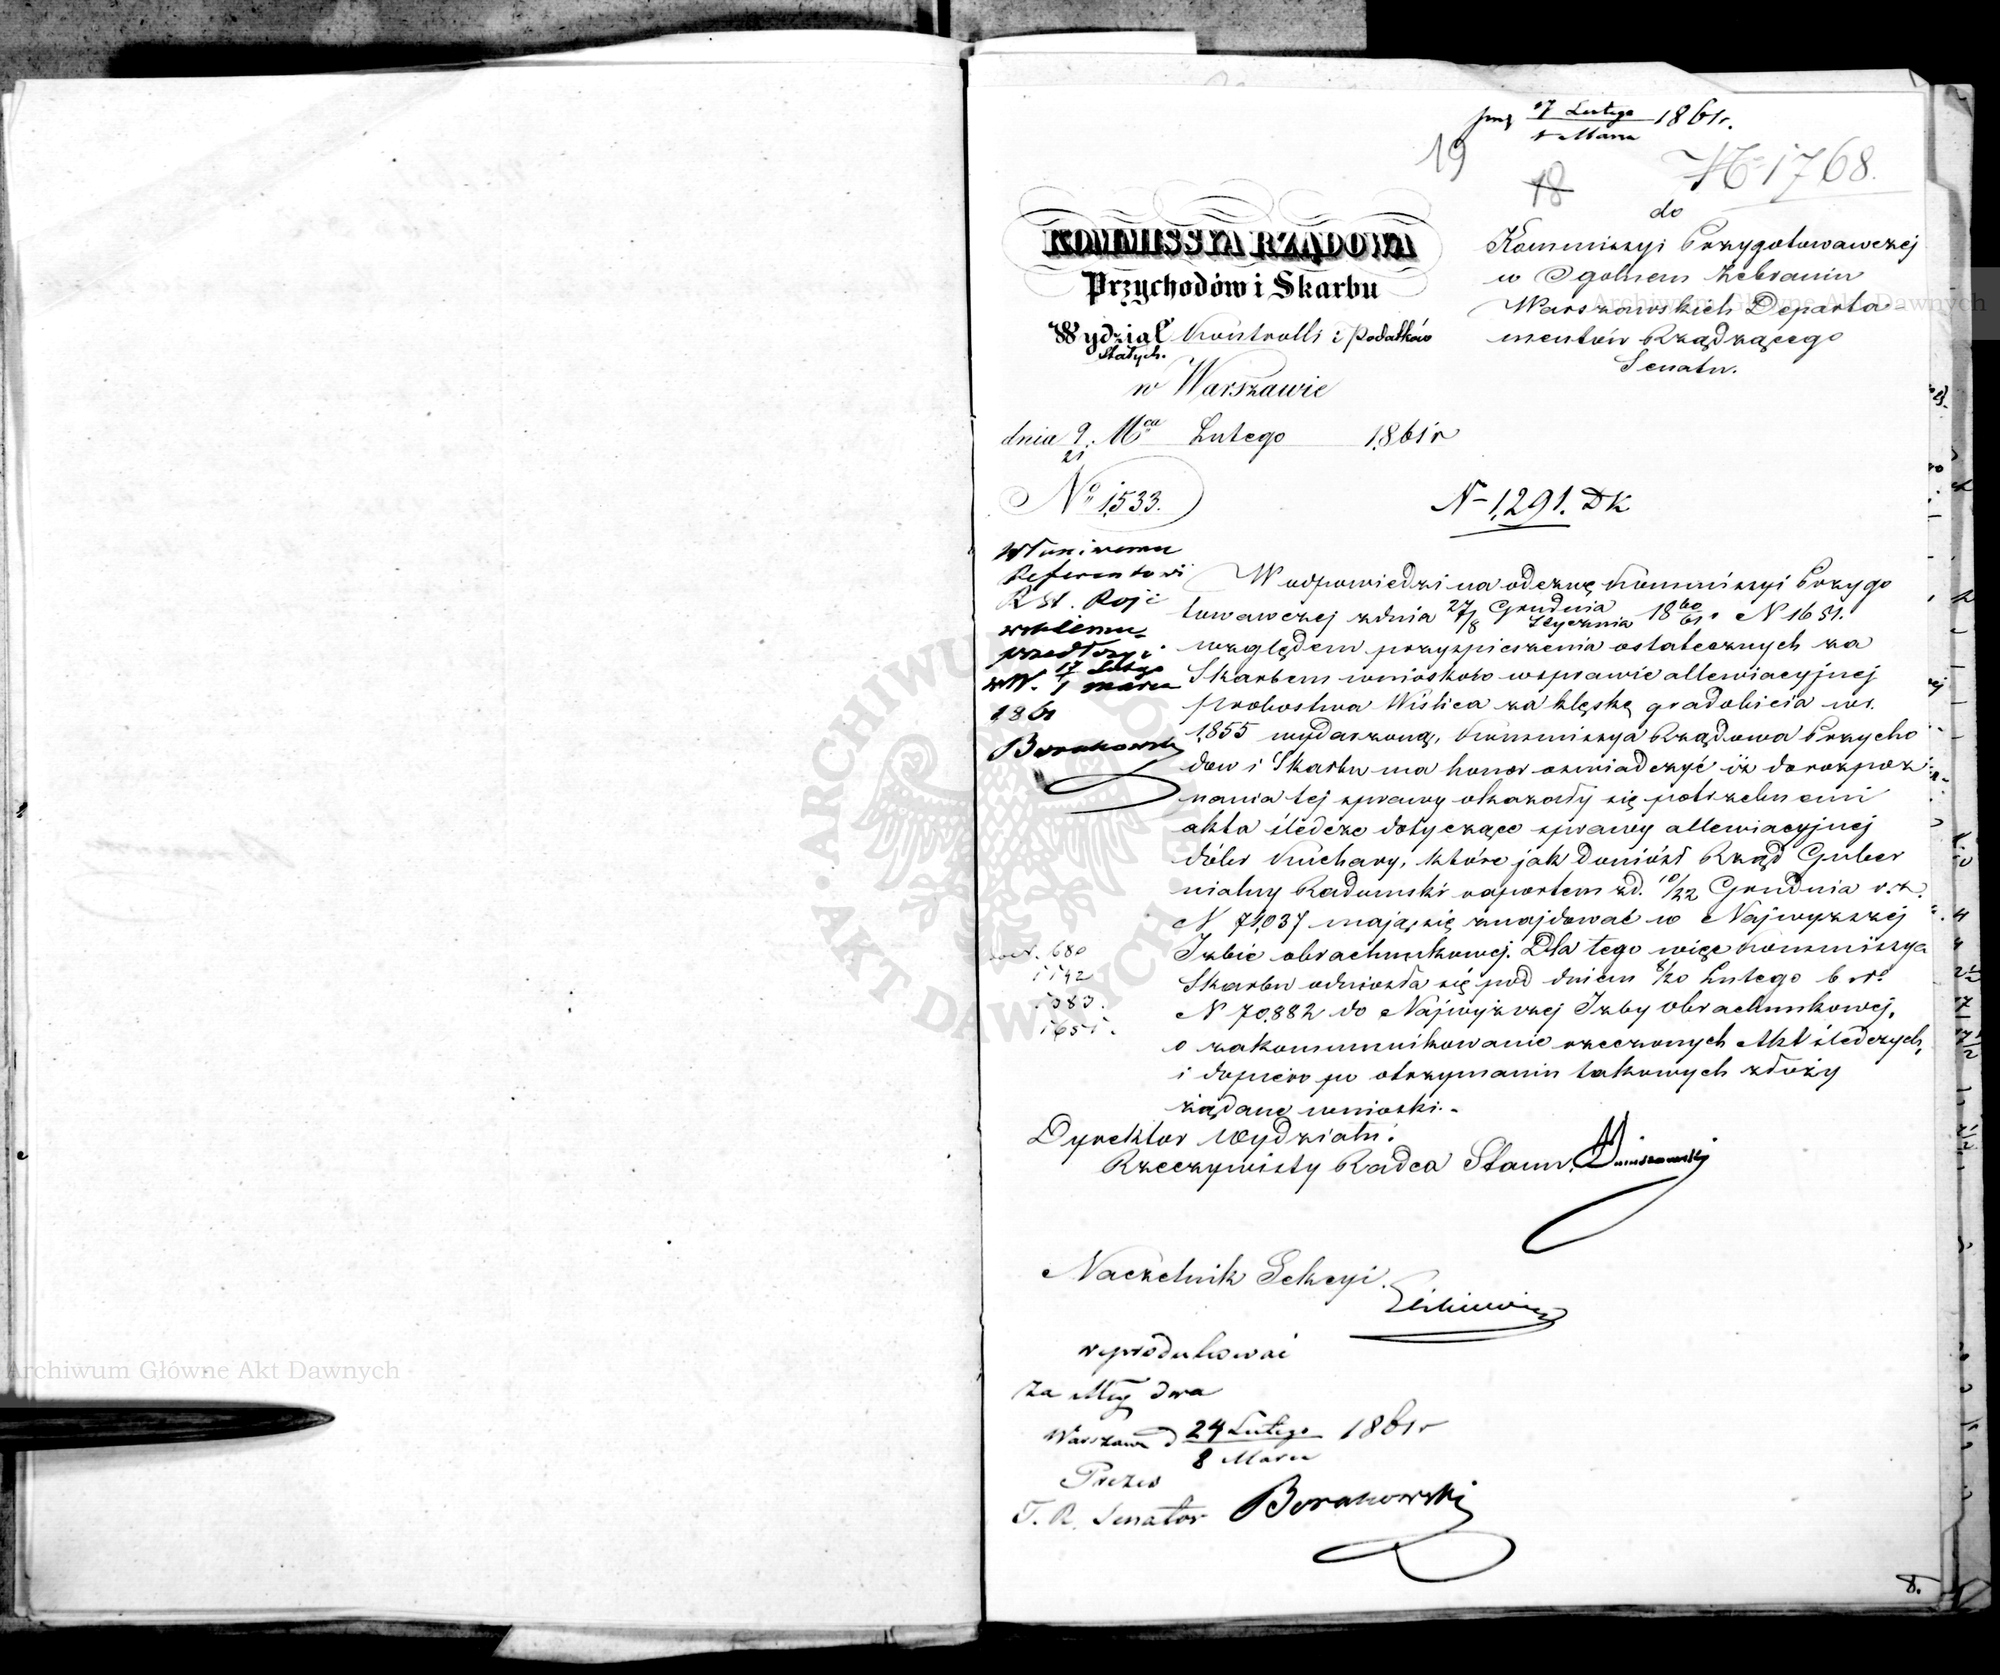 17 Lutego
1 Marca 1861r.
19
18
N 1768.
KOMMISSYA RZĄDOWA
Przychodów i Skarbu
Wydział Kontrolli i Podatków
Stałych.
w Warszawie
dnia 9/21 Mca Lutego 1861r
No 1533.
do
Kommissyi Przygotowawczej
w Ogolnem Zebraniu
Warszawskich Departa
mentów Rządzącego
Senatu.
N 1,291. DK
Referentowi
R St.
przedłożyć
w W. 17 Lutego
1 marca
1861
W odpowiedzi na odezwę Kommissyi Przygo
towawczej z dnia 27/8 Grudnia Stycznia 1860/61 N 1651.
względem przyspieszenia ostatecznych za
Skarbem wniosków w sprawie allewiacyjnej
probostwa Wislica za klęskę gradobicia w r.
1855 wydarzoną, Kommissya Rządowa Przycho
dów i Skarbu ma honor oświadczyć iż do rozpoz
nania tej sprawy okazały się potrzebnemi
akta śledcze dotyczące sprawy allewiacyjnej
dóbr Kuchary, które jak doniósł Rząd Guber
nialny Radomski raportem z d. 10/22 Grudnia r. z.
N 71,037 mają się znajdować w Najwyższej
Izbie obrachunkowej. Dla tego więc Kommissya
Skarbu odniosła się pod dniem 8/20 Lutego b. r.
N 70,882 do Najwyższej Izby obrachunkowej,
o zakommunikowanie rzeczonych Akt śledczych,
i dopiero po otrzymaniu takowych złoży
żądane wnioski.-
680
1142
1383.
1651.
Dyrektor Wydziału.
Rzeczywisty Radca Stanu.
Naczelnik Sekcyi.
reprodukować
za Mcy dwa
Warszawa d 24 Lutego
8 Marca 1861r
Prezes
T. R. Senator
8.
Archiwum Główne Akt Dawnych
Archiwum Główne Akt Dawnych
ARCHIWUM GŁÓWNE AKT DAWNYCH